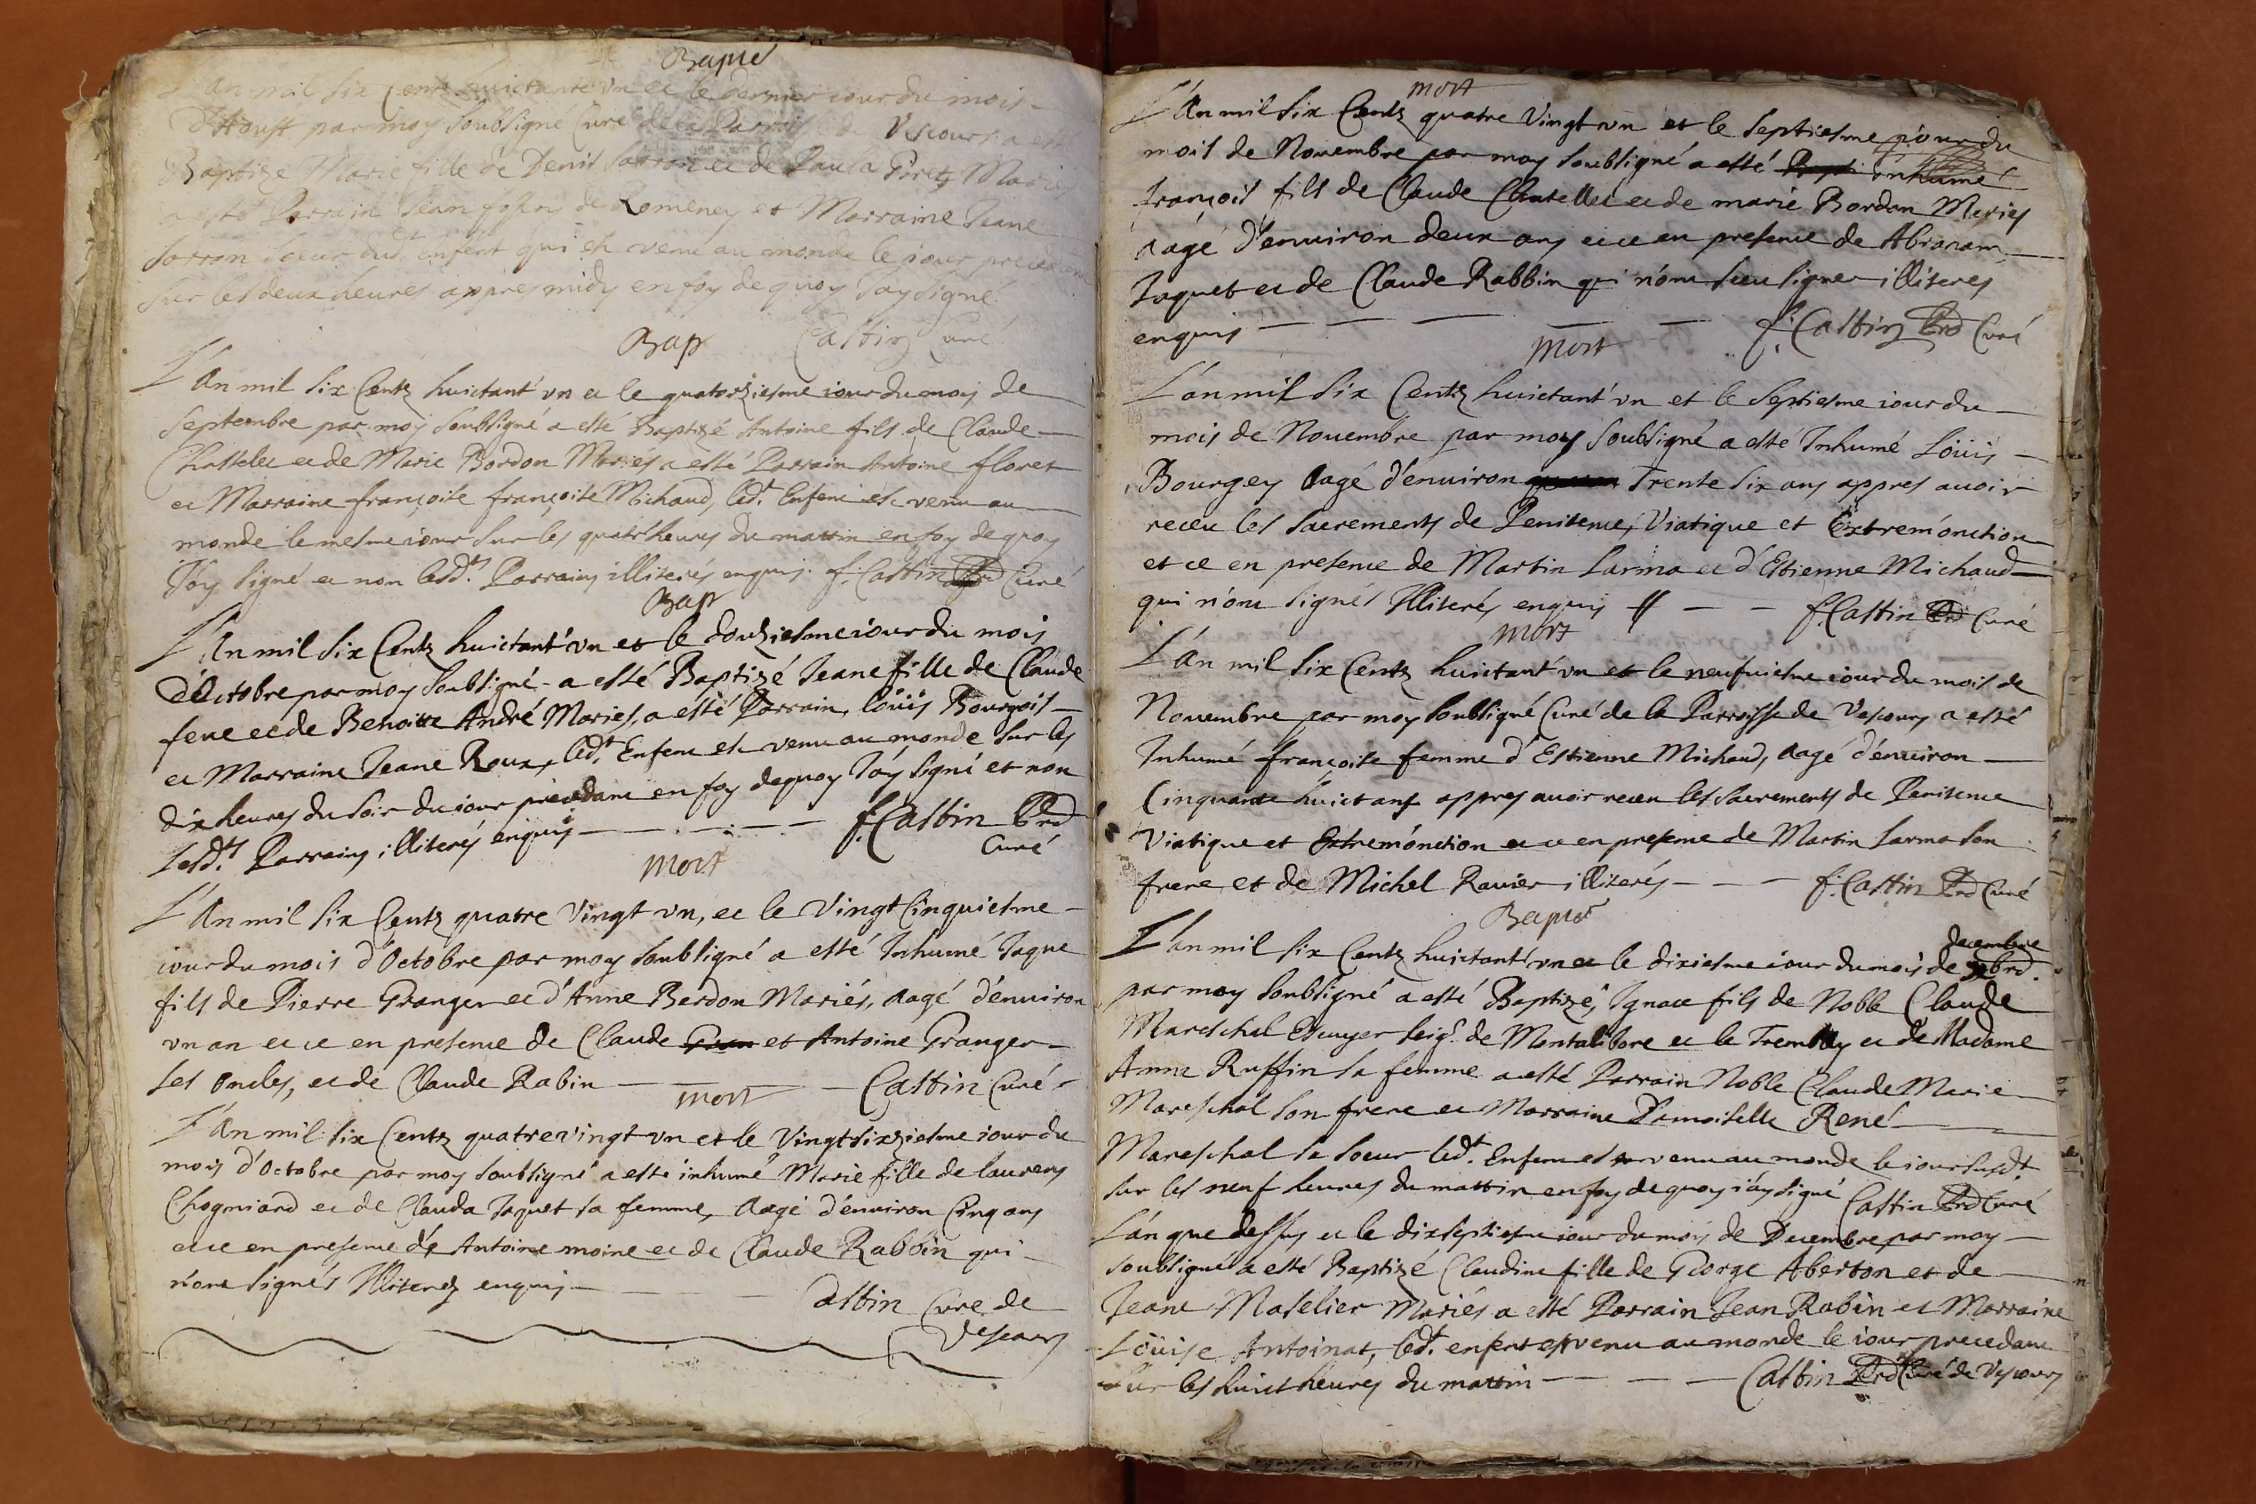 Bapté
L'An mil six Centz huictante vn et le dernier iour du mois
d'Aoust par moy soubsigné Curé de la Parroisse Vescours a esté
Baptizé Marie fille de Denis Sarron et de Paula Mariés
a esté Parrain Jean de Romeney et Marraine Jeane
Sarron soeur dud.t enfent qui est venu au monde le iour
sur les deux heures appres midy en foy de quoy J'ay signé
Castin Curé
Bap
L'An mil six Centz huictant'vn et le quatorziesme iour du mois de
Septembre par moy soubsigné a esté Baptizé Antoine fils de Claude
Chastelet et de Marie Bordon Mariés a esté Parrain Antoine floret
et Marraine françoise françoise Michaud, led.t Enfent est venu au
monde le mesme iour sur les quatr'heures du mattin en foy de quoy
J'ay signé et non lesd.ts Parrains illiterés enquis. f. Castin Prd Curé
Bap
L'An mil six Centz huictant'vn et le douziesme iour du mois
d'Octobre par moy soubsigné a esté Baptizé Jeane fille de Claude
feue et de Benoitte André Mariés, a esté Parrain, loüis Bourgois
et Marraine Jeane Roux, led.t Enfent est venu au monde sur les
dix heures du soir du iour precedant en foy de quoy J'ay signé et non
Lesd.ts Parrains illiterés enquis f. Castin Prd
Curé
Mort
L'An mil six Centz quatre Vingt vn, et le Vingt Cinquiesme
iour du mois d'Octobre par moy soubsigné a esté Inhumé Jaque
fils de Pierre Granger et d'Anne Berdon Mariés, aagé d'enuiron
vn an et ce en presence de Claude Gran et Antoine Granger
ses oncles, et de Claude Rabin Castin Curé
mort
L'An mil six Centz quatre vingt vn et le Vingt sixziesme iour du
mois d'Octobre par moy soubsigné a esté inhumé Marie fille de laurens
Chogniard et de Clauda Jaquet sa femme, aagé d'enuiron Cinq ans
et ce en presence de Antoine moine et de Claude Rabbin qui
n'ont signés Illiterez enquis
Castin Curé de
Vescours
mort
L'An mil six Centz quatre Vingt vn et le septiesme iour du
mois de Nouembre par moy soubsigné a esté Bapti inhumé
françois fils de Claude Chatellet et de marie Bordon Mariés
aagé d'enuiron deux ans et ce en presence de Abraham
Jaquet et de Claude Rabbin qui n'ont sceu signer illiterés
enquis f. Castin Prd Curé
Mort
L'an mil six Centz huictant'vn et le septiesme iour du
mois de Nouembre par moy soubsigné a esté Inhumé Loüis
Bourgey aagé d'enuiron Trente six ans appres auoir
receu les sacrements de Penitence, Viatique et Extrem'onction
et ce en presence de Martin Sarma et d'Estienne Michaud
qui n'ont signés Illiterés enquis f. Castin Prd Curé
mort
L'An mil six Centz huictant'vn et le neufuiesme iour du mois de
Nouembre par moy soubsigné Curé de la Parroisse de Vescours a esté
Inhumé françoise femme d'Estienne Michaud, aagé d'enuiron
Cinquante huict ans appres auoir receu les sacrements de Penitence
Viatique et Extrem'onction et ce en presence de Martin Sarma son
frere et de Michel Rauier illiterés f. Castin Prd Curé
Bapté
L'an mil six Centz huictant'vn et le dixiesme iour du mois de decembre
par moy soubsigné a esté Baptizé, Ignace fils de Noble Claude
Mareschal Escuyer seig.r de Montalibore et le Tremblay et de Madame
Anne Ruffin sa femme a esté Parrain Noble Claude Marie
Mareschal son frere et Marraine Damoiselle René
Mareschal sa soeur led.t Enfent est venu au monde le iour susd.t
sur les neuf heures du mattin en foy de quoy i'ay signé Castin Prd Curé
L'an que dessus et le dixseptiesme iour du mois de Decembre par moy
soubsigné a esté Baptizé Claudine fille de George Aberton et de
Jeane Matelier Mariés a esté Parrain Jean Rabin et Marraine
Loüise Antoinat, led.t enfent est venu au monde le iour precedant
sur les huict heures du mattin Castin Prd Curé de Vescours